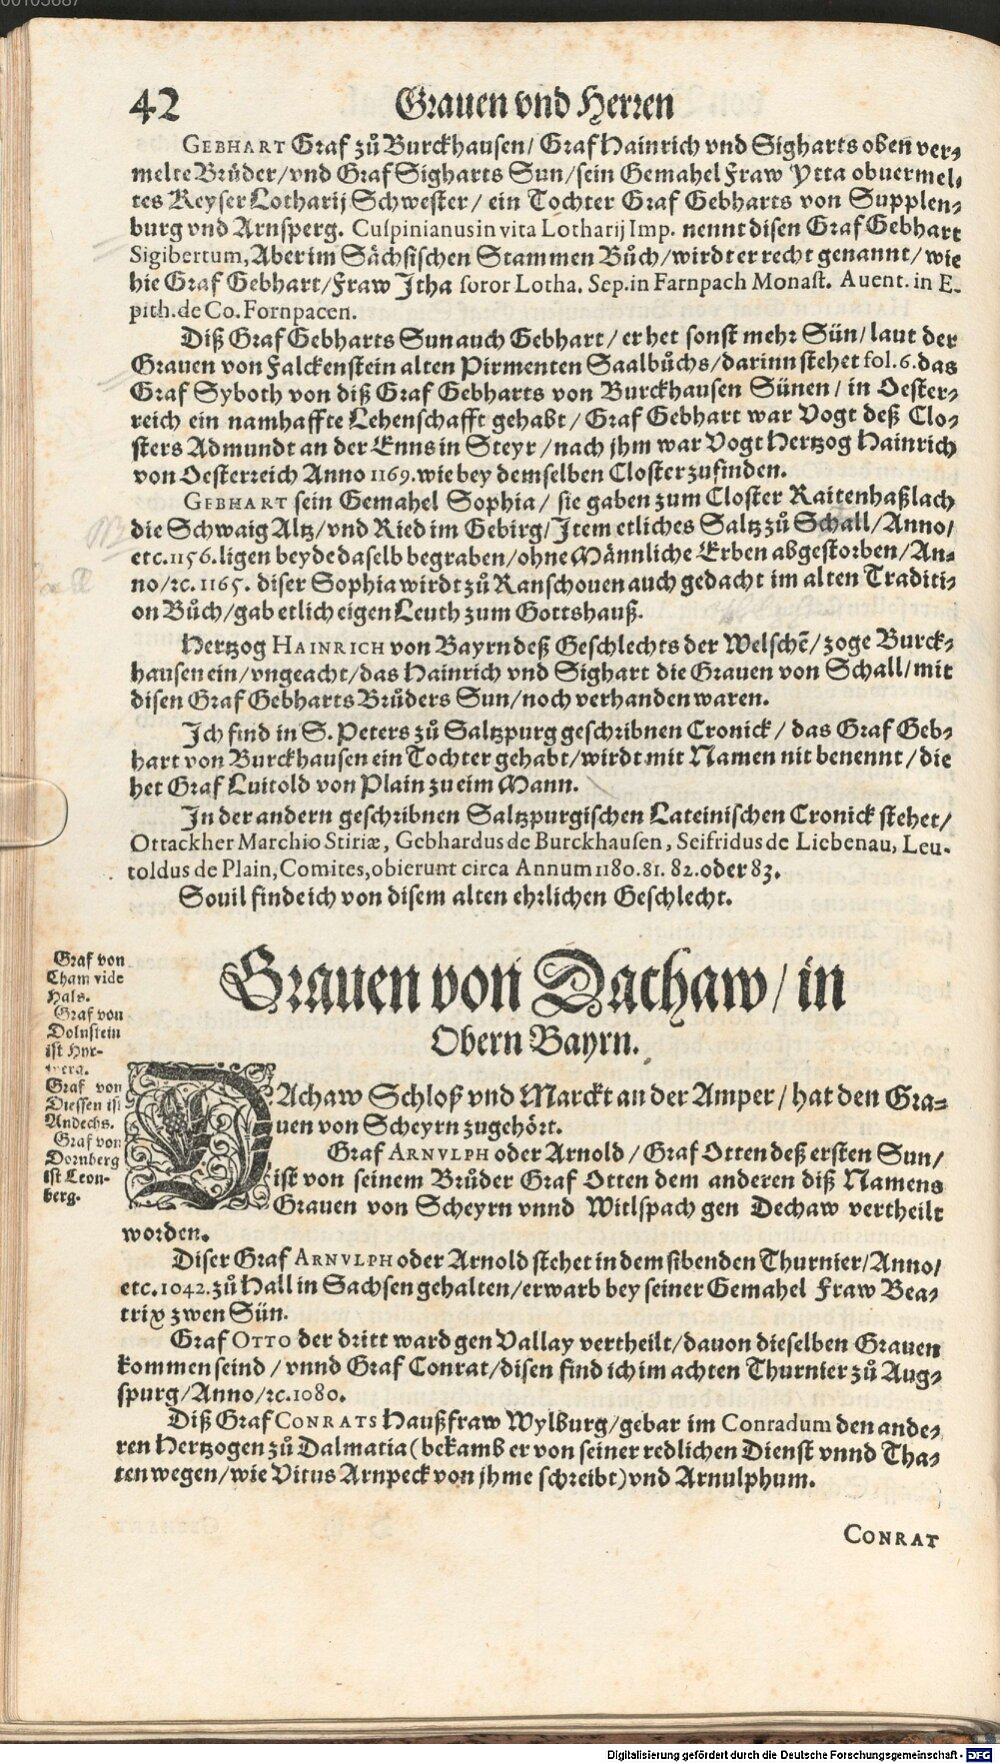 42 Grauen vnd Herren
GEBHART Graf zů Burckhausen/ Graf Hainrich vnd Sigharts oben ver⸗
melte Brüder/ vnd Graf Sigharts Sun/ sein Gemahel Fraw Ytta obuermel⸗
tes Keyser Lotharij Schwester/ ein Tochter Graf Gebharts von Supplen⸗
burg vnd Arnsperg. Cuspinianus in vita Lotharij Imp. nennt disen Graf Gebhart
Sigibertum, Aber im Sächsischen Stammen Bůch/ wirdt er recht genannt/ wie
hie Graf Gebhart/ Fraw Itha soror Lotha. Sep. in Farnpach Monast. Auent. in E-
pith. de Co. Fornpacen.
Diß Graf Gebharts Sun auch Gebhart/ er het sonst mehr Sün/ laut der
Grauen von Falckenstein alten Pirmenten Saalbůchs/ darinn stehet fol. 6. das
Graf Syboth von diß Graf Gebharts von Burckhausen Sünen/ in Oester⸗
reich ein namhaffte Lehenschafft gehabt/ Graf Gebhart war Vogt deß Clo⸗
sters Admundt an der Enns in Steyr/ nach jhm war Vogt Hertzog Hainrich
von Oesterreich Anno 1169. wie bey demselben Closter zufinden.
GEBHART sein Gemahel Sophia/ sie gaben zum Closter Raitenhaßlach
die Schwaig Altz/ vnd Ried im Gebirg/ Item etliches Saltz zů Schall/ Anno/
etc. 1156. ligen beyde daselb begraben/ ohne Männliche Erben abgestorben/ An⸗
no/ ꝛc. 1165. diser Sophia wirdt zů Ranschouen auch gedacht im alten Traditi⸗
on Bůch/ gab etlich eigen Leuth zum Gottshauß.
Hertzog HAINRICH von Bayrn deß Geschlechts der Welschẽ/ zoge Burck⸗
hausen ein/ vngeacht/ das Hainrich vnd Sighart die Grauen von Schall/ mit
disen Graf Gebharts Brůders Sun/ noch verhanden waren.
Ich find in S. Peters zů Saltzpurg geschribnen Cronick/ das Graf Geb⸗
hart von Burckhausen ein Tochter gehabt/ wirdt mit Namen nit benennt/ die
het Graf Luitold von Plain zu eim Mann.
In der andern geschribnen Saltzpurgischen Lateinischen Cronick stehet/
Ottackher Marchio Stiriæ, Gebhardus de Burckhausen, Seifridus de Liebenau, Leu-
toldus de Plain, Comites, obierunt circa Annum 1180. 81. 82. oder 83.
Souil finde ich von disem alten ehrlichen Geschlecht.
Graf von
Cham vide
Hals.
Graf von
Dolnstein
ist Hyr-
Graf von
Diessen ist
Andechs.
Graf von
Dornberg
ist Leon-
berg.
Grauen von Dachaw/ in
Obern Bayrn.
DAchaw Schloß vnd Marckt an der Amper/ hat den Gra⸗
uen von Scheyrn zugehört.
Graf ARNVLPH oder Arnold/ Graf Otten deß ersten Sun/
ist von seinem Brůder Graf Otten dem anderen diß Namens
Grauen von Scheyrn vnnd Witlspach gen Dechaw vertheilt
worden.
Diser Graf ARNVLPH oder Arnold stehet in dem sibenden Thurnier/ Anno/
etc. 1042. zů Hall in Sachsen gehalten/ erwarb bey seiner Gemahel Fraw Bea⸗
trix zwen Sün.
Graf OTTO der dritt ward gen Vallay vertheilt/ dauon dieselben Grauen
kommen seind/ vnnd Graf Conrat/ disen find ich im achten Thurnier zů Aug⸗
spurg/ Anno/ ꝛc. 1080.
Diß Graf CONRATS Haußfraw Wylburg/ gebar im Conradum den ande⸗
ren Hertzogen zů Dalmatia (bekamb er von seiner redlichen Dienst vnnd Tha⸗
ten wegen/ wie Vitus Arnpeck von jhme schreibt) vnd Arnulphum.
CONRAT
Digitalisierung gefördert durch die Deutsche Forschungsgemeinschaft - DFG